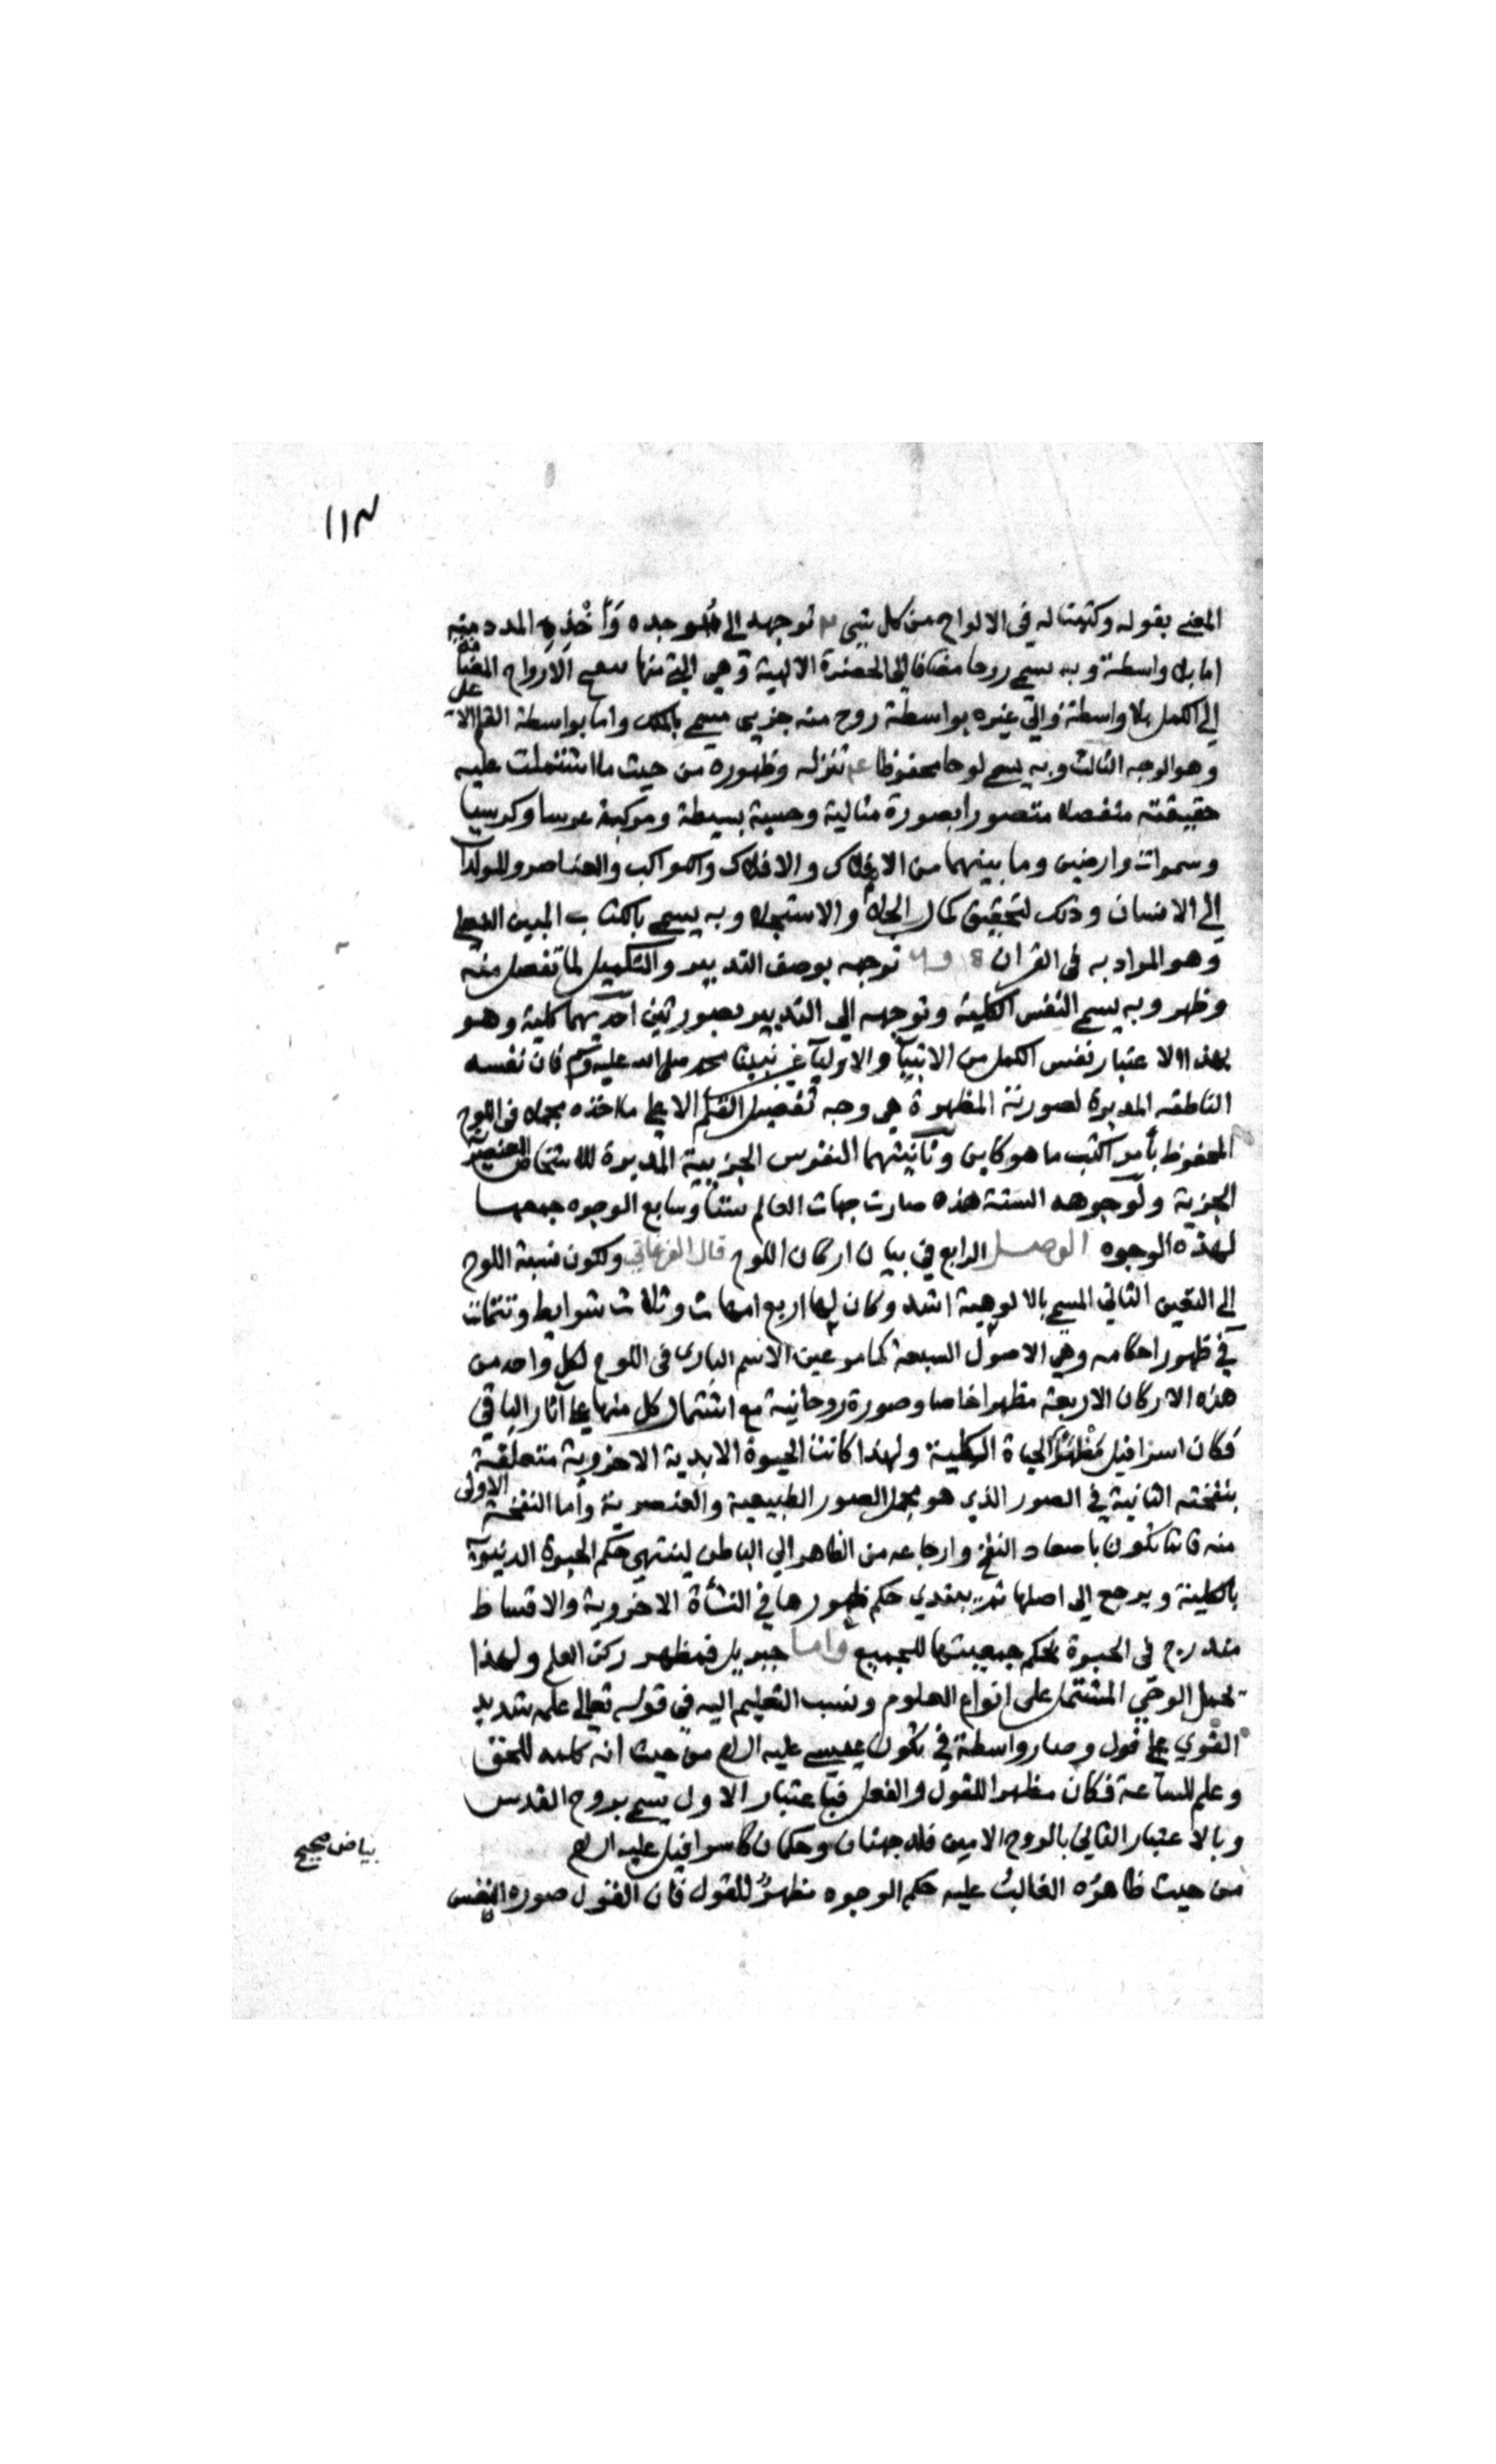 ١١٣
المعني بقوله وكتبنا له في الالواح من كل شيء ٣ توجهه الى موجده وَأَخْذِهِ المدد منه
اما بلا واسطة وبه يسمى روحا مضافا الى الحضرة الالهية وهي التي منها الارواح المضافة
الى الكمل بلا واسطة والى غيره بواسطة روح منه جزيي مسمى بالملك واما بواسطة القلم الاعلى
وهو الوجه الثالث وبه يسمى لوحا محفوظا ٤ تنزله وظهوره من حيث ما اشتملت عليه
حقيقته مفصلا متصورا بصورة مثالية وحسية بسيطة ومركبة عرشا وكرسيا
وسموات وارضين وما بينهما من الاملاك والافلاك والكواكب والعناصر والمولدات
الى الانسان وذلك لتحقيق كمال الجلاء والاستجلاء وبه يسمى بالكتاب المبين الفعلي
وهو المراد به في القران ٥ و٦ توجهه بوصف التدبير والتكميل لما تفصل منه
وظهر وبه يسمى النفس الكلية وتوجهه الي التدبير بصورتين احديهما كلية وهو
بهذا الاعتبار نفس الكمل من الانبيآ والاوليآ غير نبينا محمد صلى الله عليه وسلم فان نفسه
الناطقه المدبرة لصورته المطهرة هي وجه تفصيل القلم الاعلى ما اخذه مجملا في اللوح
المحفوظ بأمر اكتب ما هو كاين وثانيتهما النفوس الجزيية المدبرة للاشخاص العنصرية
الجزية ولوجوهه الستة هذه صارت جهات العالم ستا وسابع الوجوه جمعها
لهذه الوجوه الوصل الرابع في بيان اركان اللوح قال الفرغاني ولكون نسبة اللوح
الى التعين الثاني المسمى بالالوهية اشد وكان لها اربع امهات وثلاث شرايط وتتمات
في ظهور احكامه وهي الاصول السبعة كما مر عين الاسم الباري في اللوح لكل واحد من
هذه الاركان الاربعة مظهرا خاصا وصورة روحانية مع اشتمال كل منها على آثار الباقي
فكان اسرافيل مَظهَرَ الحياة الكلية ولهذا كانت الحيوة الابدية الاخروية متعلقة
بنفخته الثانية في الصور الذي هو مجمل الصور الطبيعية والعنصرية وأما النفخة الاولى
منه فانما تكون باصعاد النفخ وارجاعه من الظاهر الي الباطن لينتهي حكم الحيوة الدنيوية
بالكلية ويرجع الى اصلها ثم يبتدي حكم ظهورها في النشأة الاخروية والاقساط
مندرج في الحيوة بحكم جمعيتها للجميع واما جبريل فمظهر ركن العلم ولهذا
تحمل الوحي المشتمل على انواع العلوم ونسب التعليم اليه في قوله تعالى علمه شديد
القوي على قول وصار واسطة في تكون عيسى عليه السلام من حيث انه كلمه للحق
وعلم للساعة فكان مظهرا للقول والفعل فباعتبار الاول يسمى بروح القدس
وبالاعتبار الثاني بالروح الامين فله جهتان وحكمان كاسرافيل عليه السلام
بياض صحيح
من حيث ظاهرُه الغالبُ عليه حكم الوجوه مظهرٌ للقول فان القول صوره النفس